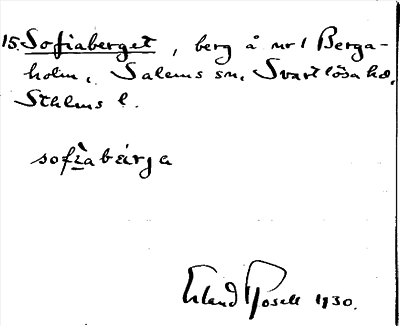 15. Sofiaberget, berg å nr 1 Berga-
holm, Salems sn, Svartlösa hd,
Sthlms l.
sofìabärja
Erland Rosell 1930.